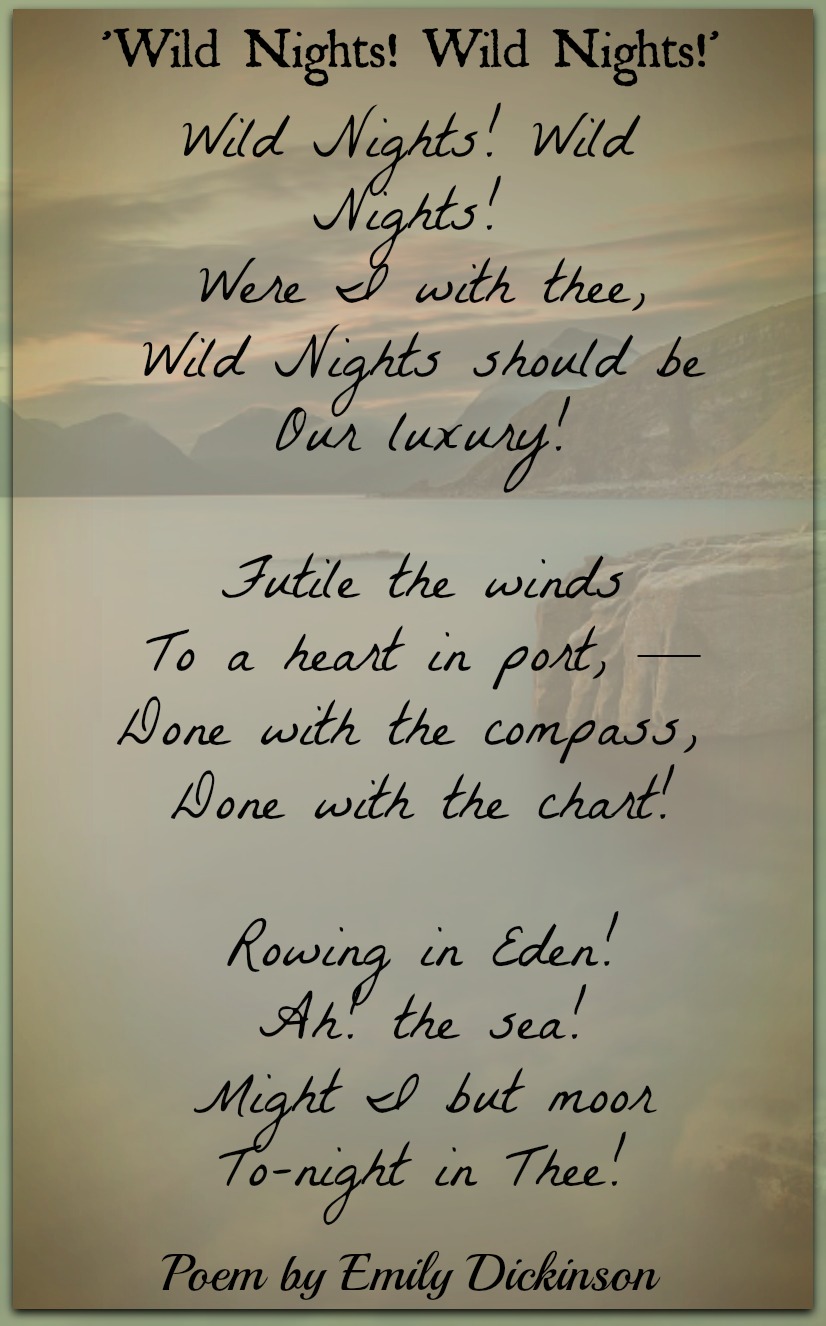 'Wild Nights! Wild Nights!'
Wild Nights! Wild
Nights!
Were I with thee,
Wild Nights should be
Our luxury!
Futile the winds
To a heart in port, —
Done with the compass,
Done with the chart!
Rowing in Eden!
Ah! the sea!
Might I but moor
To-night in Thee!
Poem by Emily Dickinson